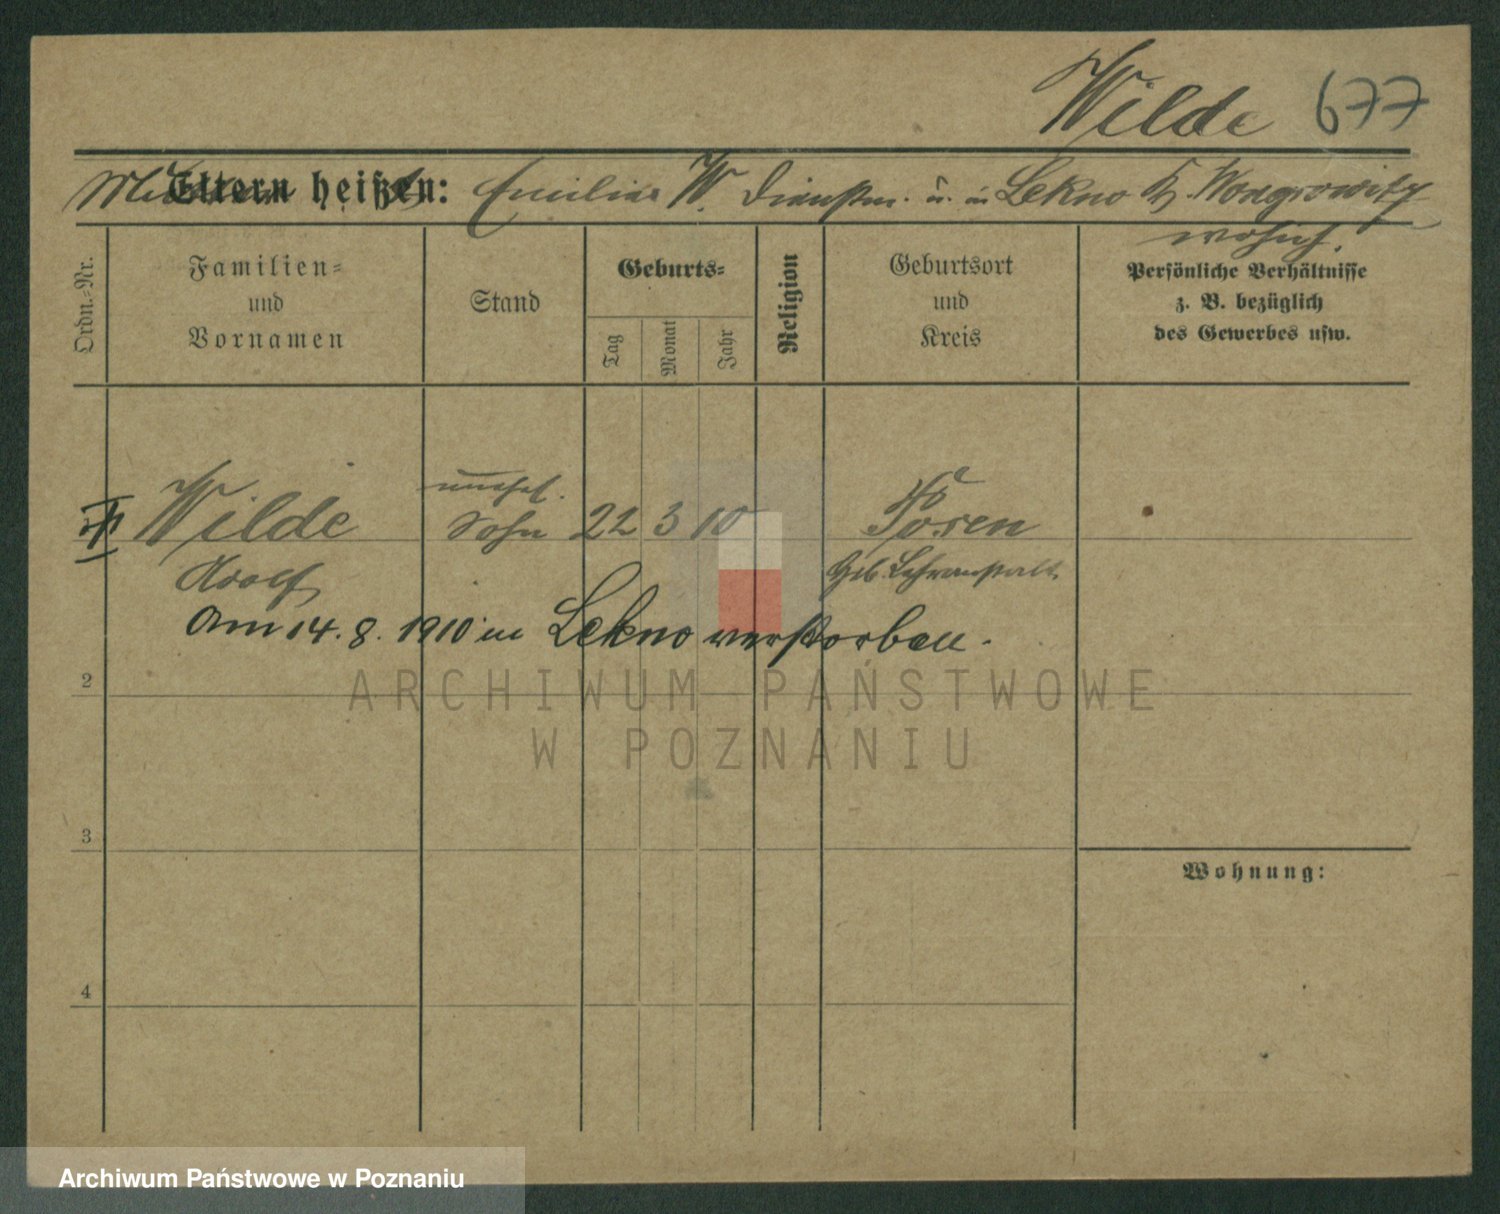 Wilde 677
Mutter Eltern heißen: Emilie W. Dienstm. u. in Lekno Kr. Wongrowitz
wohnh.
Ordn.-Nr.
Familien-
und
Vornamen
Stand
Geburts-
Tag
Monat
Jahr
Religion
Geburtsort
und
Kreis
Persönliche Verhältnisse
z. B. bezüglich
des Gewerbes usw.
unehel.
Wilde Sohn 22 3 10 Posen
Adolf Heb. Lehranstalt
Am 14. 8. 1910 in Lekno verstorben.
2
ARCHIWUM PAŃSTWOWE
W POZNANIU
3
Wohnung:
4
Archiwum Państwowe w Poznaniu